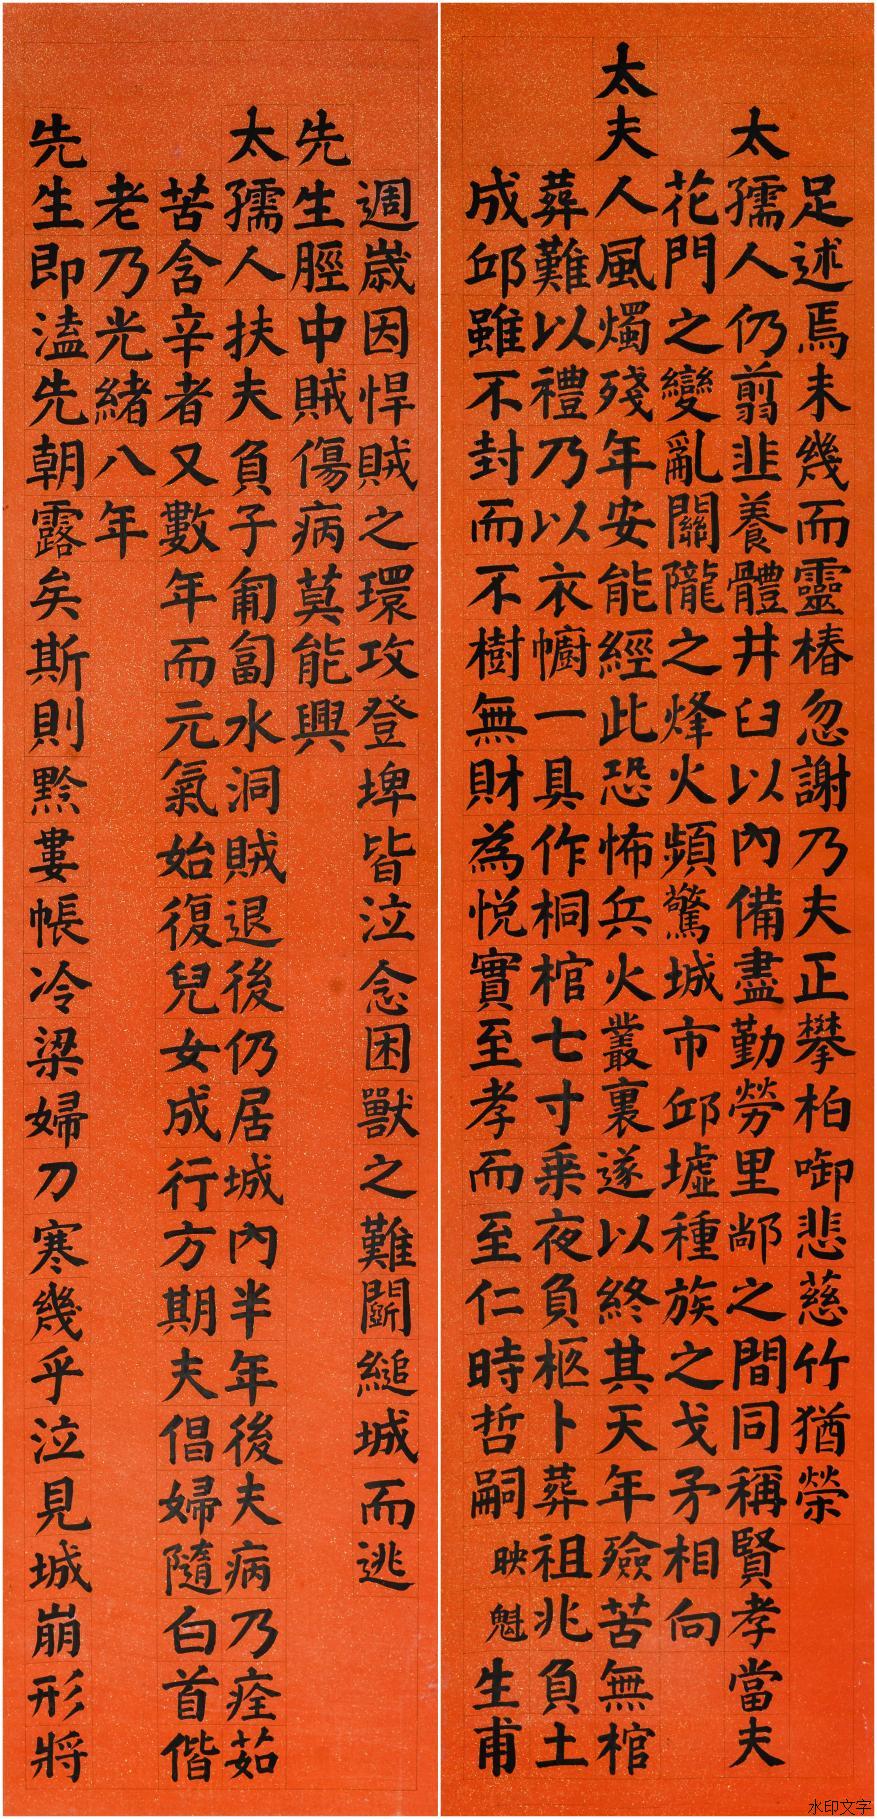 足述焉未幾而靈椿忽謝乃夫正攀柏啣悲慈竹猶榮
太孺人仍翦韭養體井臼以內備盡勤勞里鄰之間同稱賢孝當夫
花門之變亂關隴之烽火頻驚城市邱墟種族之戈矛相向
太夫人風燭殘年安能經此恐怖兵火叢裏遂以終其天年殮苦無棺
葬難以禮乃以衣幮一具作桐棺七寸乘夜負柩卜葬祖兆負土
成邱雖不封而不樹無財為悅實至孝而至仁時哲嗣映魁生甫
週歲因悍賊之環攻登埤皆泣念困獸之難鬭縋城而逃
先生脛中賊傷病莫能興
太孺人扶夫負子匍匐水洞賊退後仍居城內半年後夫病乃痊茹
苦含辛者又數年而元氣始復兒女成行方期夫倡婦隨白首偕
老乃光緒八年
先生即溘先朝露矣斯則黔婁帳冷梁婦刀寒幾乎泣見城崩形將
水印文字